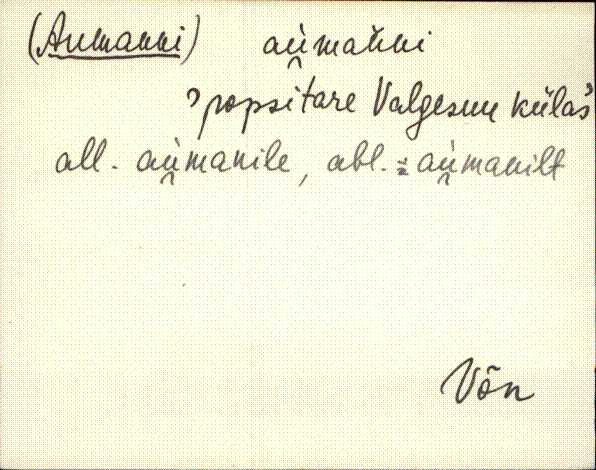 (Aumanni) au̯mǎnni
'popsitare Valgesuu külas'
all. au̯manile, abl. au̯manilt
Võn